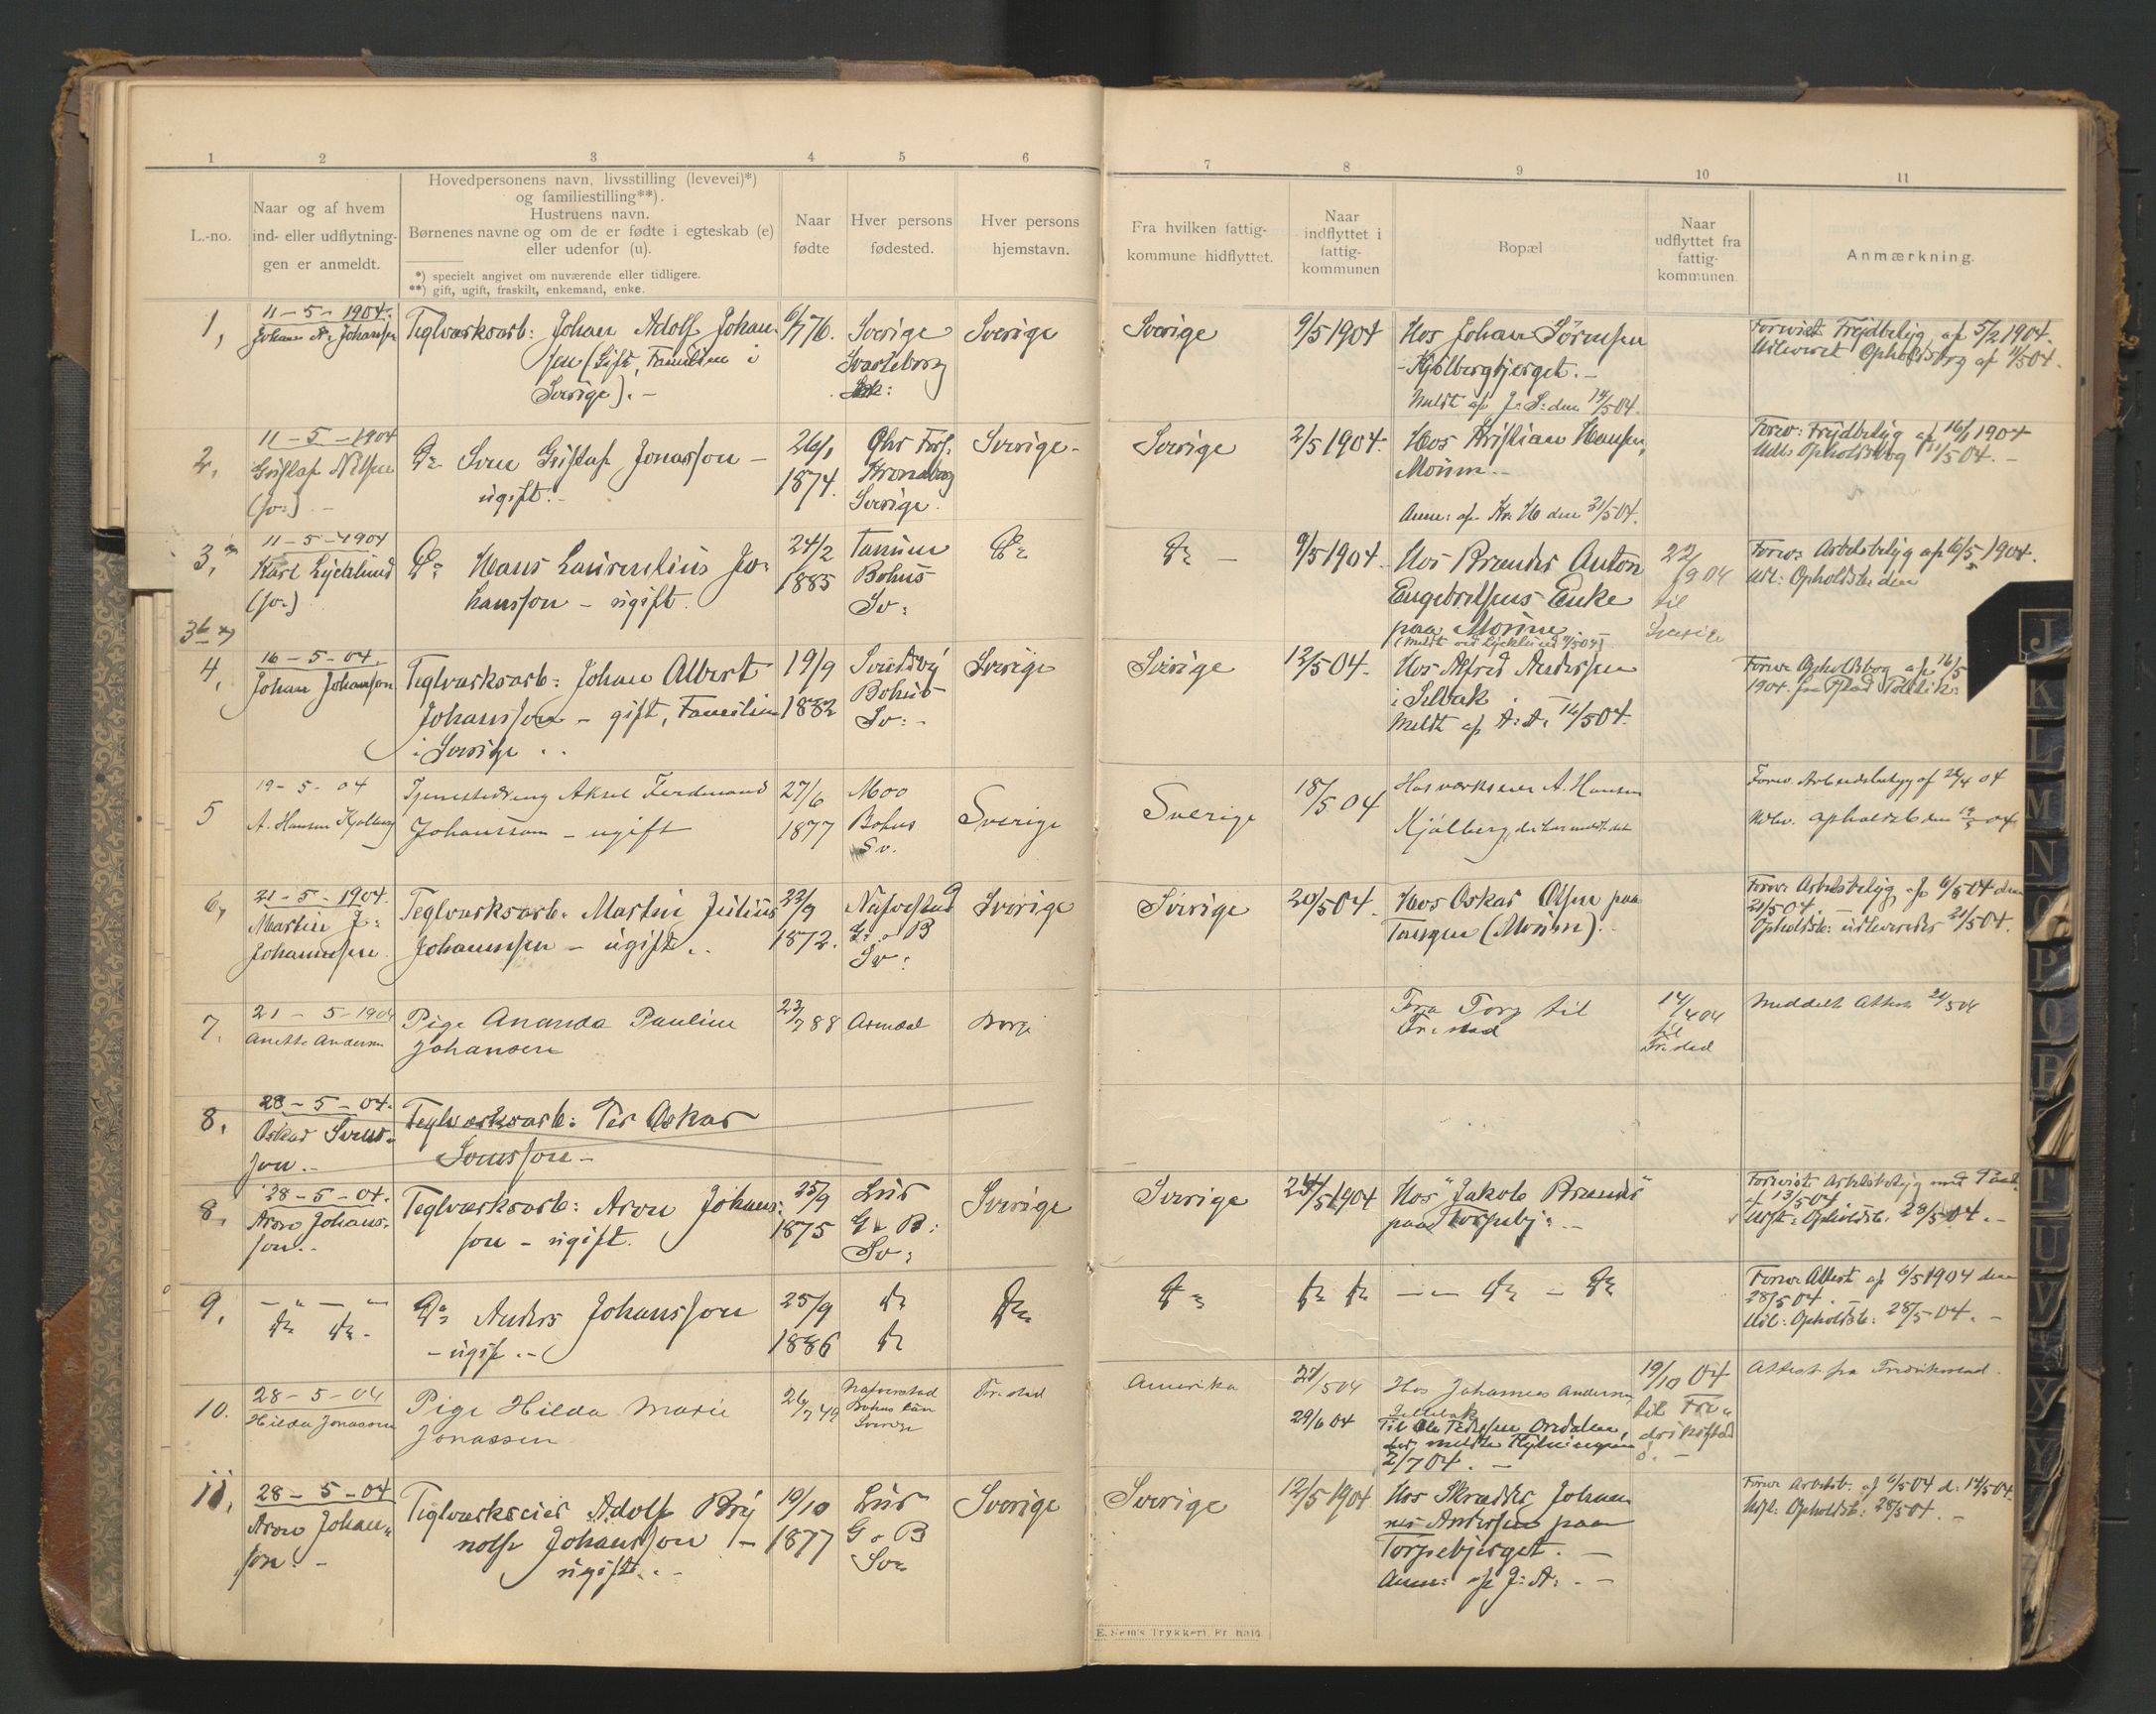 1 2 3 4 5 6 7 8 9 10 11
L.-no.
Naar og af hvem
ind- eller udflytnin-
gen er anmeldt.
Hovedpersonens navn, livsstilling (levevei)*)
og familiestilling**).
Hustruens navn.
Børnenes navne og om de er fødte i egteskab (e)
eller udenfor (u).
*) specielt angivet om nuværende eller tidligere.
**) gift, ugift, fraskilt, enkemand, enke.
Naar
fødte
Hver persons
fødested.
Hver persons
hjemstavn.
Fra hvilken fattig-
kommune hidflyttet.
Naar
indflyttet i
fattig-
kommunen
Bopæl
Naar
udflyttet fra
fattig-
kommunen.
Anmærkning.
1,
11-5-1904.
Johan A: Johansen
Teglværksarb: Johan Adolf Johan-
sen (Gift, Familien i
Sverige).-
6/7 76.
Sverige
Svarteborg
Sverige
Sverige
9/5 1904
Hos Johan Sørensen
Kjølbergbjerget.-
Meldt af J: S: den 14/5 04.
Forevist Frejdbetyg af 5/2 1904.
Udleveret Opholdsbog af 11/5 04.
2,
11-5-1904
Gustaf Nilsen
(sv:)
Do Sven Gustaf Jonasson -
ugift.-
26/1
1874.
Kronoberg
Sverige.
Sverige.
Sverige
2/5 1904.
Hos Kristian Hansen,
Moum.-
Anm: af Kr. H den 21/5 04.
Forev: Frejdbetyg af 16/1 1904
Udl: Opholdsbog 11/5 04.-
3,
11-5-1904
Karl Lycklund
(sv:)
Do Hans Laurentius Jo-
hansson - ugift.
24/2
1885
Tanum
Bohus
Sv:
Do
Do -
9/5 1904.
Hos Brænder Anton
Engebretsens Enke
paa Moum.-
(Meldt ved Lycklund 11/5 04)
22/
9 04
til
Sverige
Forev: Arbeidsbetyg af 6/5 1904.
Udl: Opholdsb: den
3b
4,
16-5-04.
Johan Johanson
Teglværksarb: Johan Albert
Johansson - gift, Familien
i Sverige..
19/9
1882
Bohus
Sv:-
Sverige
Sverige
12/5 04.
Hos Alfred Andersen
i Selbak
Meldt af A: A. 14/5 04.
Forev. Opholdsbog af 16/5
1904. fra Fstad Politik:
5
19-5-04
A. Hansen Kjølberg
Tjenestedreng Aksel Ferdinand
Johansson - ugift
27/6
1877
Moo
Bohus
Sv.
Sverige
Sverige
18/5 04
Hos værkseier A. Hansen
Kjølberg, der har meldt det
Forev. Arbeidsbetyg af 26/4 04
Udlev. opholdsb den 19/5 04
6,
21-5-1904.
Martin J:
Johannesen
Teglværksarb. Martin Julius
Johannesen - ugift..
22/9
1872.
Nafvestad
G: o B
Sv:
Sverige
Sverige
20/5 04.
Hos Oskar Olsen paa
Tangen (Moum).
Forev: Arbeidsbetyg af 6/5 04 den
21/5 04.-
Opholdsb: udleveredes 21/5 04.
7.
21-5-1904
Anette Andersen
Pige Ananda Pauline
Johansen
23/7 88
Borge
Fra Torp til
Fr.stad
14/4 04
til
Fr.stad
Meddelt Attest 21/5 04
8,
28-5-04.
Oskar Svens-
son.-
Teglværksarb: Per Oskar
Svensson-
8,
28-5-04.
Aron Johans-
son.-
Teglværksarb: Aron Johans-
son - ugift.
25/9
1875
Lur
G o B:
Sv:
Sverige
Sverige
24/5 1904
Hos "Jakob Brænder"
paa Torpebj:.-
Forevist Arbeidsbetyg
af 13/5 04
Udst: Opholdsb: 28/5 04.-
9,
- " - "
Do Do-
Do Anders Johansson
- ugift.-
25/9
1886
Do
Do
Do
Do
Do Do
- " - Do - Do
Forev: Attest af 6/5 1904 den
28/5 04.
Udl: Opholdsb: 28/5 04.-
10.
28-5-04
Hilda Jonassen
Pige Hilda Marie
Jonassen
26/7 49
Nafverstad
Bohus län
Sverige
Fr.stad
Amerika
27/5 04
29/6 04
Hos Johannes Andersen,
Selbak
Til Ole Pedersen Ordalen,
der meldte Flytningen
2/7 04.-
19/10 04
til Fre-
drikstad
Attest fra Fredrikstad.
11,
28-5-04
Aron Johan-
son.-
Teglværkseier Adolf Bry
nolf Johansson -
ugift..-
19/10
1877
Lur
G o B
Sv:
Sverige
Sverige
12/5 1904
Hos Skræder Johan-
nes Andersen paa
Torpebjerget.-
Anm: af J: A:.-
Forev: Arbeidsb. af 6/5 04 d: 14/5 04.
Udst: Opholdsb: 28/5 04.-
E. Sem's Trykkeri, Fr.hald.
J
K
L
M
N
O
P
Q
R
T
U
V
X
Y